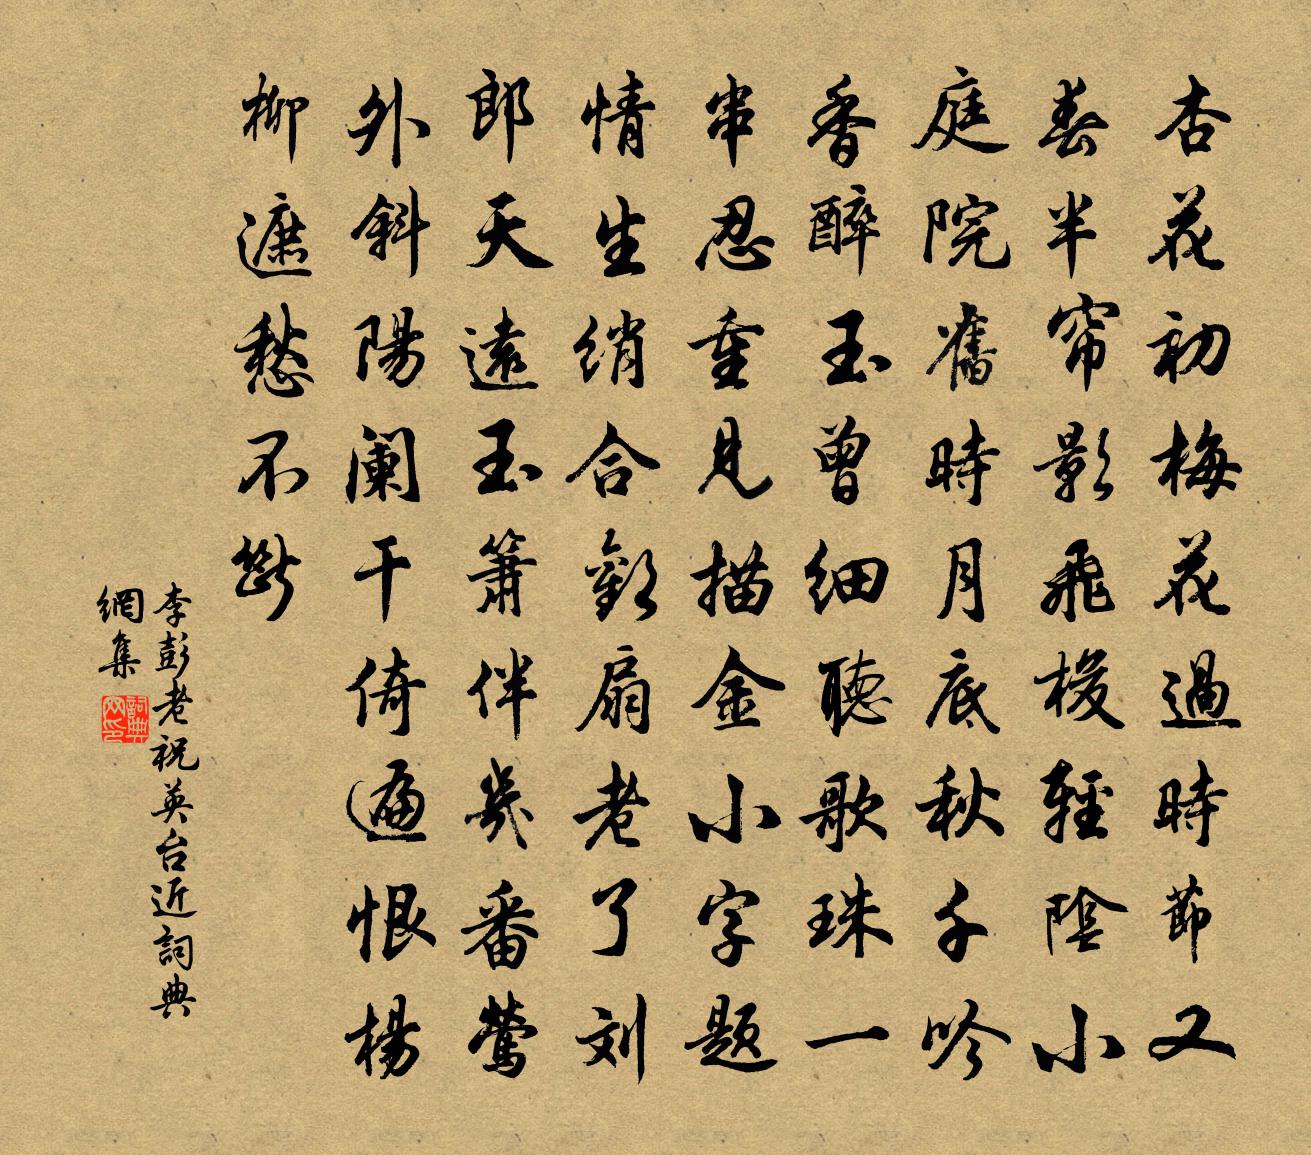 杏花初梅花過時節又
春半帘影飛梭輕陰小
庭院舊時月底秋千吟
香醉玉曾細聽歌珠一
串忍重見描金小字題
情生綃合歡扇老了刘
郎天遠玉簫伴幾番鶯
外斜陽阑干倚遍恨楊
柳遮愁不斷
李彭老祝英台近詞典
網集
詞典網印